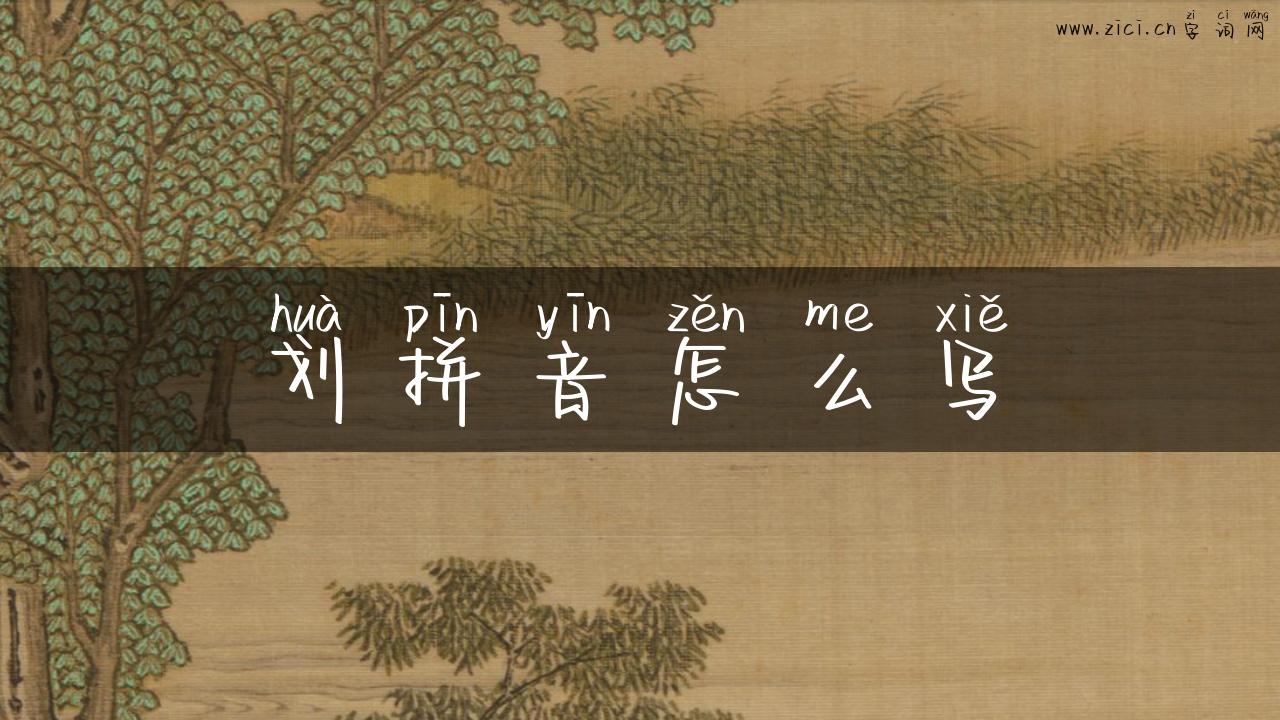 zì cí wǎng
www.zici.cn字词网
huà pīn yīn zěn me xiě
划拼音怎么写